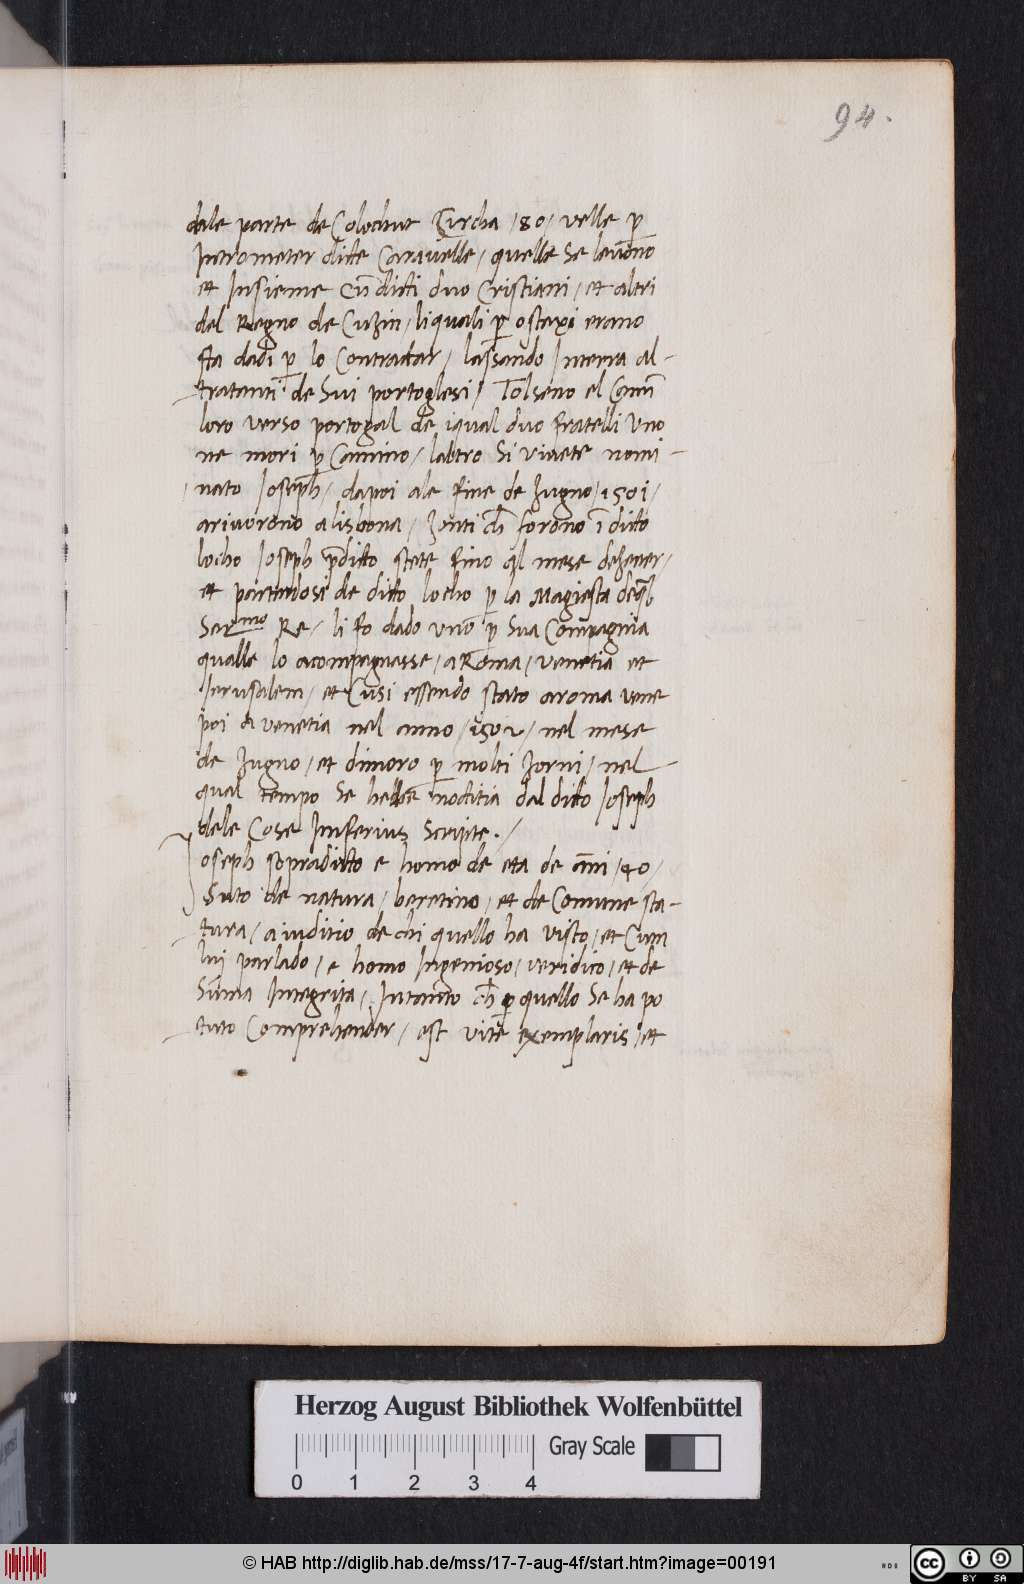 94.
dale parte de Colochut Circha /80/ velle p̱
Intrometer ditte Caravelle / quelle se levorono
et Insieme Cū dicti duo Cristiani / et altri
del Regno de Cuzin / li quali p̱ ostaxi erano
sta dadi p̱ lo Contractar / lassando In terra al-
tratanti de Sui portoglesi / Tolseno el Camī
loro verso portogal de i qual duo fratelli Uno
ne mori p̱ Camino / laltro Si vivete nomi-
nato Ioseph / dapoi ale fine de Zugno / 1501 /
arivorono a lisbona / Zonti ch̄ forono ī ditto
locho Ioseph p̄ditto stete fino al mese de Zener /
et partendosi de ditto locho p̱ la Magiesta de q̄l
Ser.mo Re / li fo dado uno p̱ Sua Compagnia
qualle lo acompagnasse / a Roma / venetia et
Ierusalem / et Cusi essendo stato a roma vene
poi a venetia nel anno / 1502 / nel mese
de Zugno / et dimoro p̱ molti Zorni / nel
qual tempo Se hebbe noctitia dal ditto Ioseph
dele Cose Inferius Scripte . /
Ioseph sopraditto e homo de eta de āni / 40 /
Suto de natura / beretino / et de Comune sta-
tura / a iuditio de chi quello ha visto / et Cum
lui parlado / e homo Ingenioso / veridico / et de
Suma Integrita / In tanto ch̄ p̱ quello Se ha po
tuto Comprehender / est vite exemplaris / et
Herzog August Bibliothek Wolfenbüttel
Gray Scale
0 1 2 3 4
© HAB http://diglib.hab.de/mss/17-7-aug-4f/start.htm?image=00191
HAB
cc BY SA